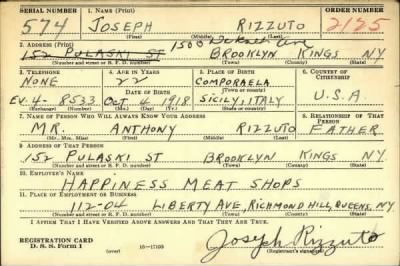 SERIAL NUMBER 1. NAME (Print) ORDER NUMBER
574 JOSEPH RIZZUTO 2125
(First) (Middle) (Last)
2. ADDRESS (Print) 1500 DeKalb Ave
152 PULASKI ST BROOKLYN KINGS NY
(Number and street or R. F. D. number) (Town) (County) (State)
3. TELEPHONE 4. AGE IN YEARS 5. PLACE OF BIRTH 6. COUNTRY OF CITIZENSHIP
NONE 22 COMPORAELA
DATE OF BIRTH (Town or county)
EV. 4- 8533 OCT 4 1918 SICILY, ITALY U.S.A
(Exchange) (Number) (Mo.) (Day) (Yr.) (State or country)
7. NAME OF PERSON WHO WILL ALWAYS KNOW YOUR ADDRESS 8. RELATIONSHIP OF THAT PERSON
MR. ANTHONY RIZZUTO FATHER
(Mr., Mrs., Miss) (First) (Middle) (Last)
9. ADDRESS OF THAT PERSON
152 PULASKI ST BROOKLYN KINGS NY
(Number and street or R. F. D. number) (Town) (County) (State)
10. EMPLOYER'S NAME
HAPPINESS MEAT SHOPS
11. PLACE OF EMPLOYMENT OR BUSINESS
112-04 LIBERTY AVE, RICHMOND HILL, QUEENS, NY.
(Number and street or R. F. D. number) (Town) (County) (State)
I AFFIRM THAT I HAVE VERIFIED ABOVE ANSWERS AND THAT THEY ARE TRUE.
REGISTRATION CARD
D. S. S. Form 1 (over) 16-17105 Joseph Rizzuto
(Registrant's signature)